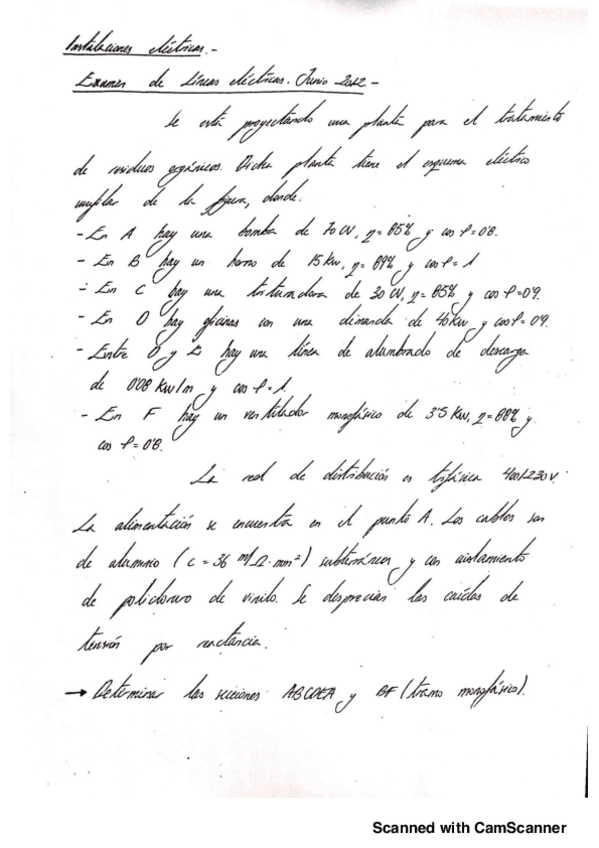 Instalaciones eléctricas.-
Examen de Líneas eléctricas. Junio 2012 -
Se está proyectando una planta para el tratamiento
de residuos orgánicos. Dicha planta tiene el esquema eléctrico
unifilar de la figura, donde:
- En A hay una bomba de 70 CV, η=85% y cos φ=0'8.
- En B hay un horno de 15 Kw, η=89% y cos φ=1
- En C hay una trituradora de 30 CV, η=85% y cos φ=0'9.
- En D hay oficinas con una demanda de 40 Kw y cos φ=0'9.
- Entre D y E hay una línea de alumbrado de descarga
de 0'08 Kw/m y cos φ=1.
- En F hay un ventilador monofásico de 3'5 Kw, η=88% y
cos φ=0'8.
La red de distribución es trifásica 400/230 V.
La alimentación se encuentra en el punto A. Los cables son
de aluminio (c=36 m/Ω·mm²) subterráneos y con aislamiento
de policloruro de vinilo. Se desprecian las caídas de
tensión por reactancia.
→ Determinar las secciones ABCDEA y BF (tramo monofásico).
Scanned with CamScanner